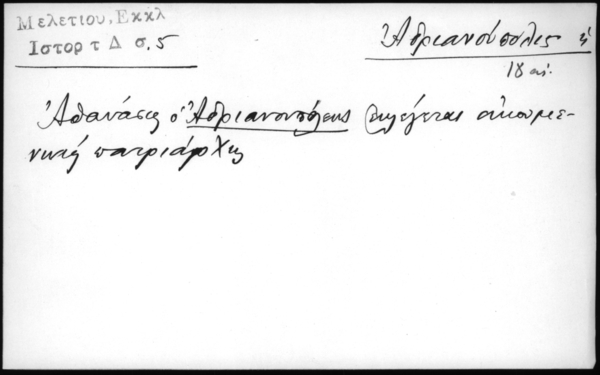 Μελετίου, Εκκλ
Ιστορ τ Δ σ. 5
Ἀδριανούπολις ἡ
18 αἰ.
Ἀθανάσιος ὁ Ἀδριανουπόλεως ἐκλέγεται οἰκουμε-
νικός πατριάρχης